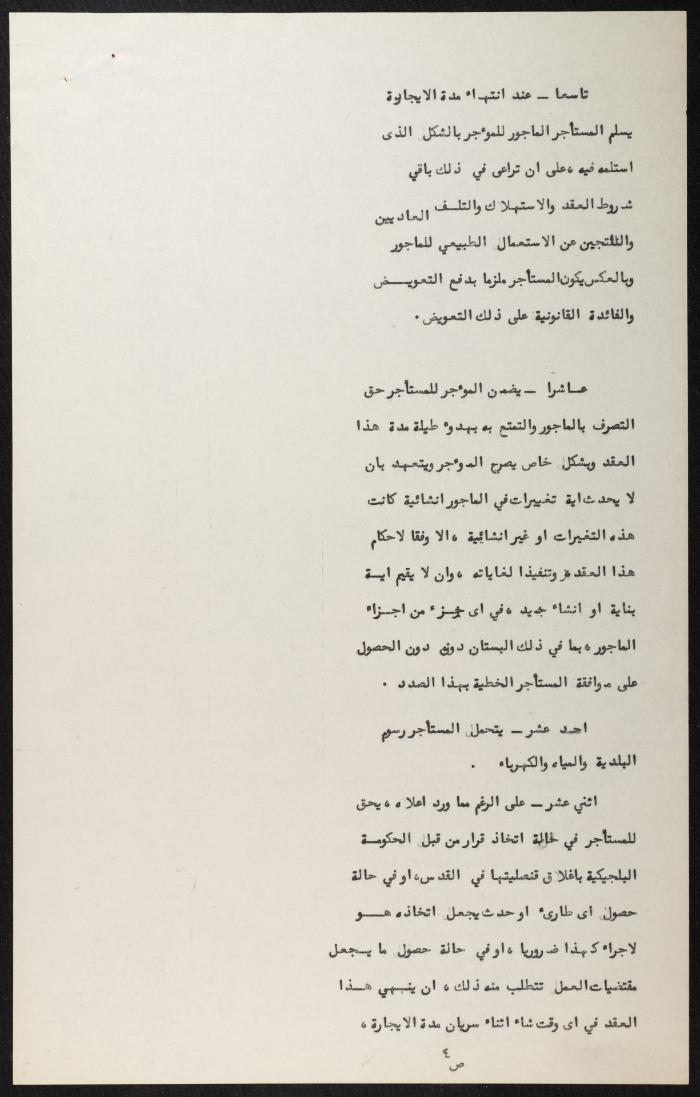 تاسعا – عند انتهاء مدة الايجارة
يسلم المستأجر الماجور للموءجر بالشكل الذى
استلمه فيه ،على ان تراعى في ذلك باقي
شروط العقد والاستهلاك والتلف العاديين
والناتجين عن الاستعمال الطبيعي للماجور
وبالعكس يكون المستأجر ملزما بدفع التعويض
والفائدة القانونية على ذلك التعويض .
عاشرا – يضمن الموءجر للمستأجر حق
التصرف بالماجور والتمتع به بهدوء طيلة مدة هذا
العقد وبشكل خاص يصرح الموءجر ويتعهد بان
لا يحدث اية تغييرات في الماجور انشائية كانت
هذه التغيرات او غير انشائية ،الا وفقا لاحكام
هذا العقد وتنفيذا لغاياته ،وان لا يقيم اية
بناية او انشاء جديد ،في اى جزء من اجزاء
الماجور ،بما في ذلك البستان دون دون الحصول
على موافقة المستأجر الخطية بهذا الصدد .
احد عشر – يتحمل المستأجر رسوم
البلدية والمياه والكهرباء .
اثني عشر – على الرغم مما ورد اعلاه ،يحق
للمستأجر في حالة اتخاذ قرار من قبل الحكومة
البلجيكية باغلاق قنصليتها في القدس ،او في حالة
حصول اى طارىء او حدث يجعل اتخاذه هو
لاجراء كهذا ضروريا ،او في حالة حصول ما يجعل
مقتضيات العمل تتطلب منه ذلك ، ان ينهي هذا
العقد في اى وقت شاء اثناء سريان مدة الايجارة ،
ص ٤